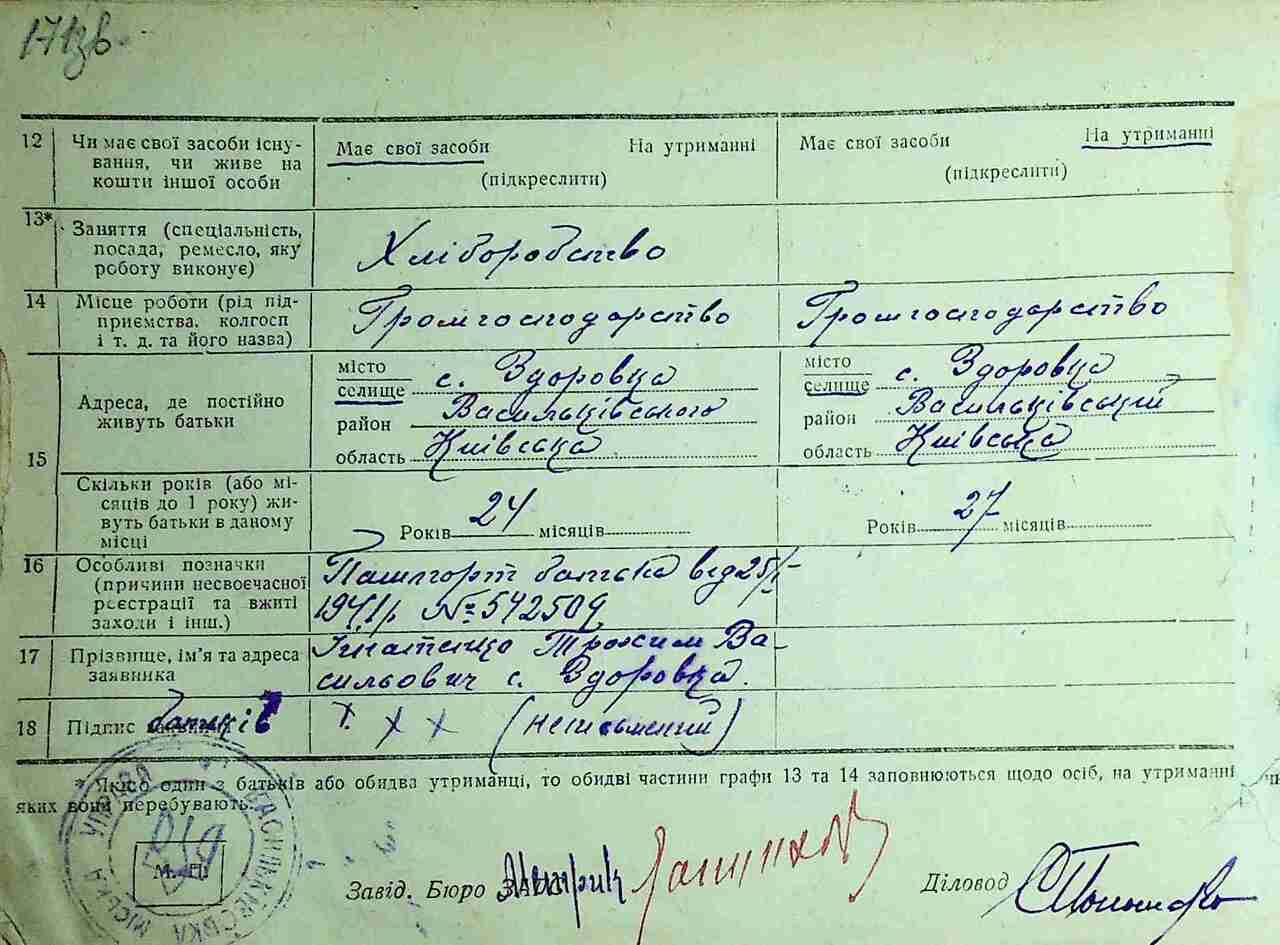 171зв.
12 Чи має свої засоби існу- Має свої засоби На утриманні Має свої засоби На утриманні
вання, чи живе на
кошти іншої особи (підкреслити) (підкреслити)
13* Заняття (спеціальність,
посада, ремесло, яку Хліборобство
роботу виконує)
14 Місце роботи (рід під- Громгосподарство Громгосподарство
приємства, колгосп
і т. д. та його назва)
15 Адреса, де постійно
живуть батьки
місто
селище с. Здоровка
район Васильківського
область Київська
місто
селище с. Здоровка
район Васильківський
область Київська
Скільки років (або мі-
сяців до 1 року) жи-
вуть батьки в даному
місці
Років 24 місяців Років 27 місяців
16 Особливі позначки
(причини несвоєчасної
реєстрації та вжиті
заходи і інш.)
Пашпорт батька від 25/
1941р №542509
17 Прізвище, ім'я та адреса
заявника
Трохим Ва-
сильович с. Здоровка.
18 Підпис батьків х х х (неписьменний)
* Якщо один з батьків або обидва утриманці, то обидві частини графи 13 та 14 заповнюються щодо осіб, на утриманні
яких вони перебувають.
ВАСИЛЬКІВСЬКА МІСЬКА УПРАВА
М. П.
Завід. Бюро Метрик
Діловод